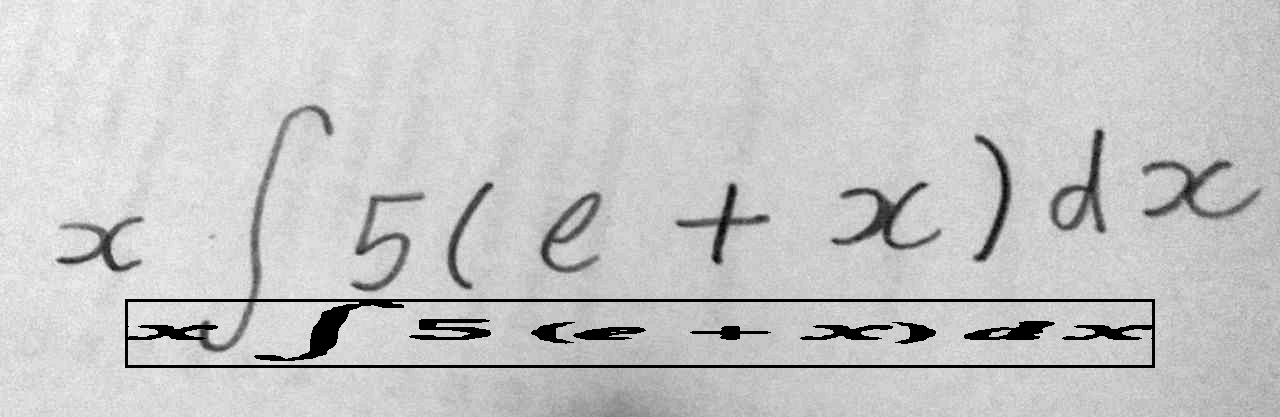 x ∫ 5 ( e + x ) d x
x ∫ 5 (e + x) d x